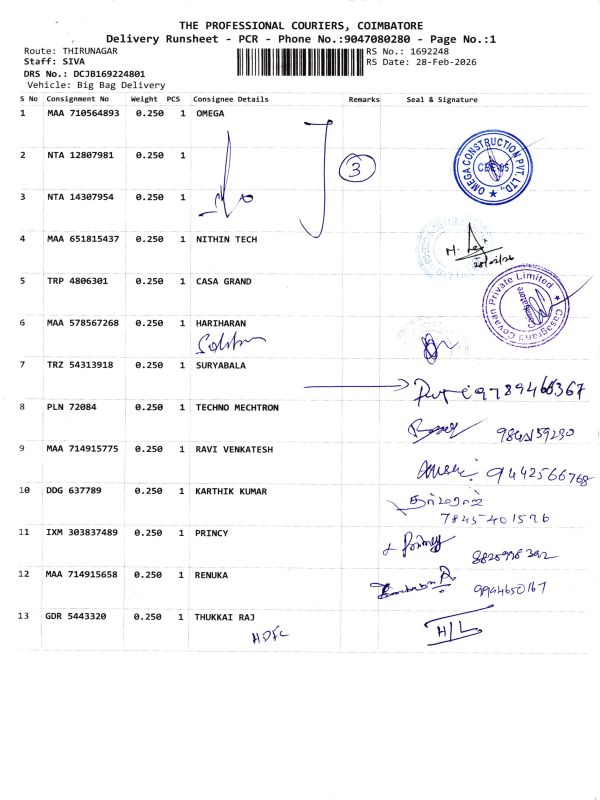 THE PROFESSIONAL COURIERS, COIMBATORE
Delivery Runsheet - PCR - Phone No.:9047080280 - Page No.:1
Route: THIRUNAGAR RS No.: 1692248
Staff: SIVA RS Date: 28-Feb-2026
DRS No.: DCJB169224801
Vehicle: Big Bag Delivery
S No Consignment No Weight PCS Consignee Details Remarks Seal & Signature
1 MAA 710564893 0.250 1 OMEGA
2 NTA 12807981 0.250 1
3
OMEGA CONSTRUCTION PVT. LTD.,
3 NTA 14307954 0.250 1
4 MAA 651815437 0.250 1 NITHIN TECH
28/02/26
5 TRP 4806301 0.250 1 CASA GRAND
Casagrand Covaan Private Limited
Coimbatore
6 MAA 578567268 0.250 1 HARIHARAN
7 TRZ 54313918 0.250 1 SURYABALA
8 PLN 72084 0.250 1 TECHNO MECHTRON
9 MAA 714915775 0.250 1 RAVI VENKATESH
9442566768
10 DDG 637789 0.250 1 KARTHIK KUMAR
7845401576
11 IXM 303837489 0.250 1 PRINCY
12 MAA 714915658 0.250 1 RENUKA
9994650167
13 GDR 5443320 0.250 1 THUKKAI RAJ
HDFC
H/L